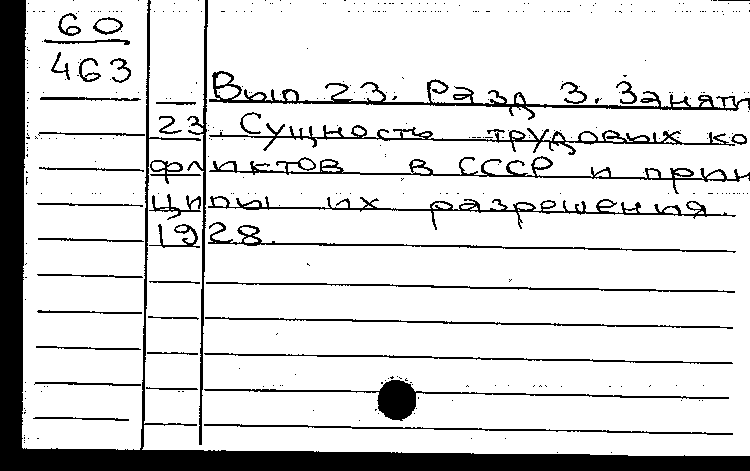 60
463
Вып 23. Разд 3. Заняти
23. Сущность трудовых ко
фликтов в СССР и прин
ципы их разрешения.
1928.